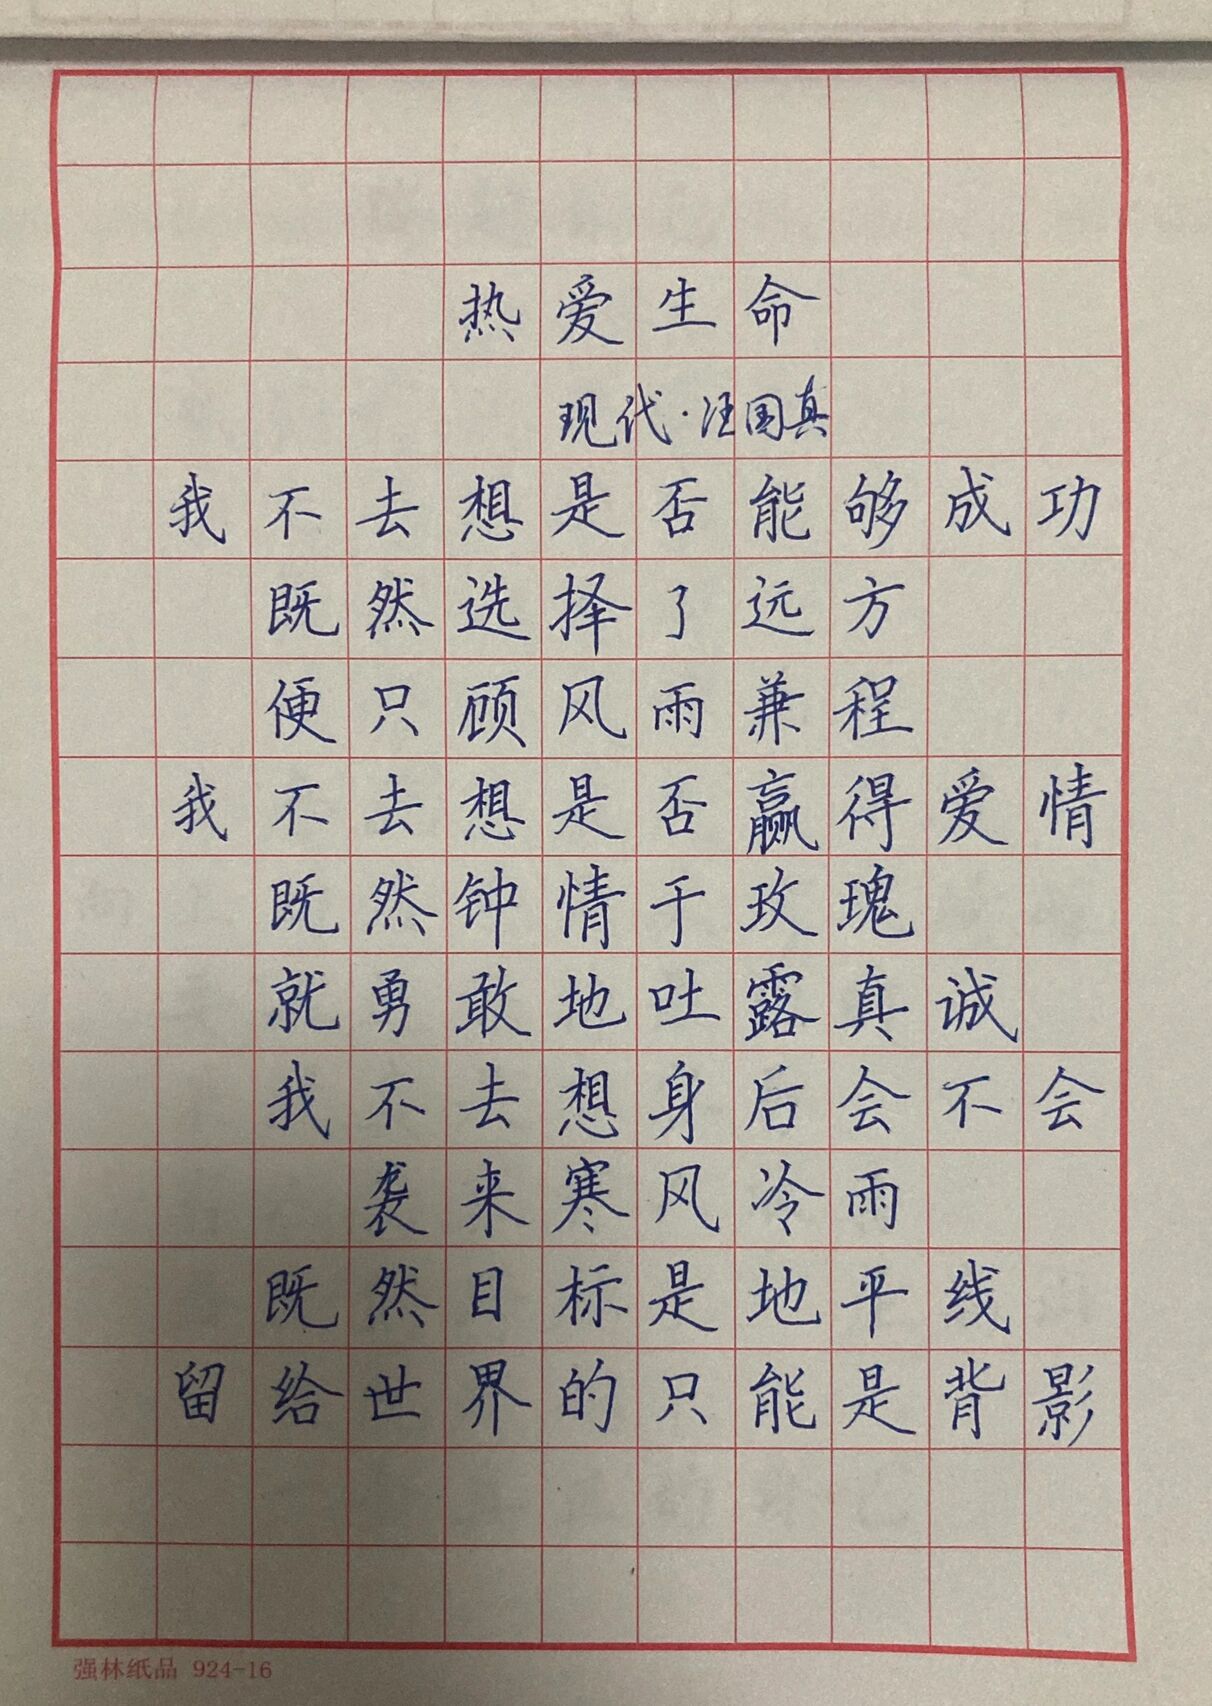 热爱生命
现代·汪国真
我不去想是否能够成功
既然选择了远方
便只顾风雨兼程
我不去想是否赢得爱情
既然钟情于玫瑰
就勇敢地吐露真诚
我不去想身后会不会
袭来寒风冷雨
既然目标是地平线
留给世界的只能是背影
强林纸品 924-16